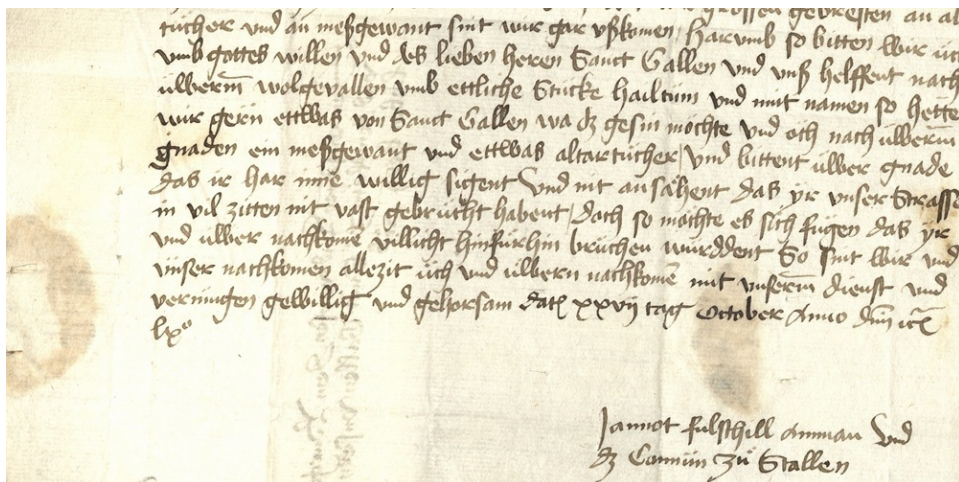 grossen gebresten an al
tücher und an meßgewant sint wir gar ußkomen / Harumb so bitten wir üch
umb gottes willen und des lieben heren Sanct Gallen und unß helffent nach
üwerm̄ wolgevallen umb ettliche Stucke hailtum und mit namen so hette
wir gern ettwas von Sanct Gallen wa dz gesin möchte und och nach üwerm̄
gnaden ein meßgewant und ettwas altartücher / Und bittent üwer gnade
das ir har inne willig sigent Und nit ansähent das yr unser Strasse
in vil zitten nit vast gebrucht habent / doch so möchte es sich fügen das yr
und üwer nachkomē villicht hinfürhin bruchen wurddent So sint wir und
unser nachkomen allezit üch und üwern nachkomē mit unserm̄ dienst und
vermugen gewillig und gehorsam dat xxvij tag October Anno dm̄
lxº
Jannot fulschill amman Und
dz Comun zu Stallen